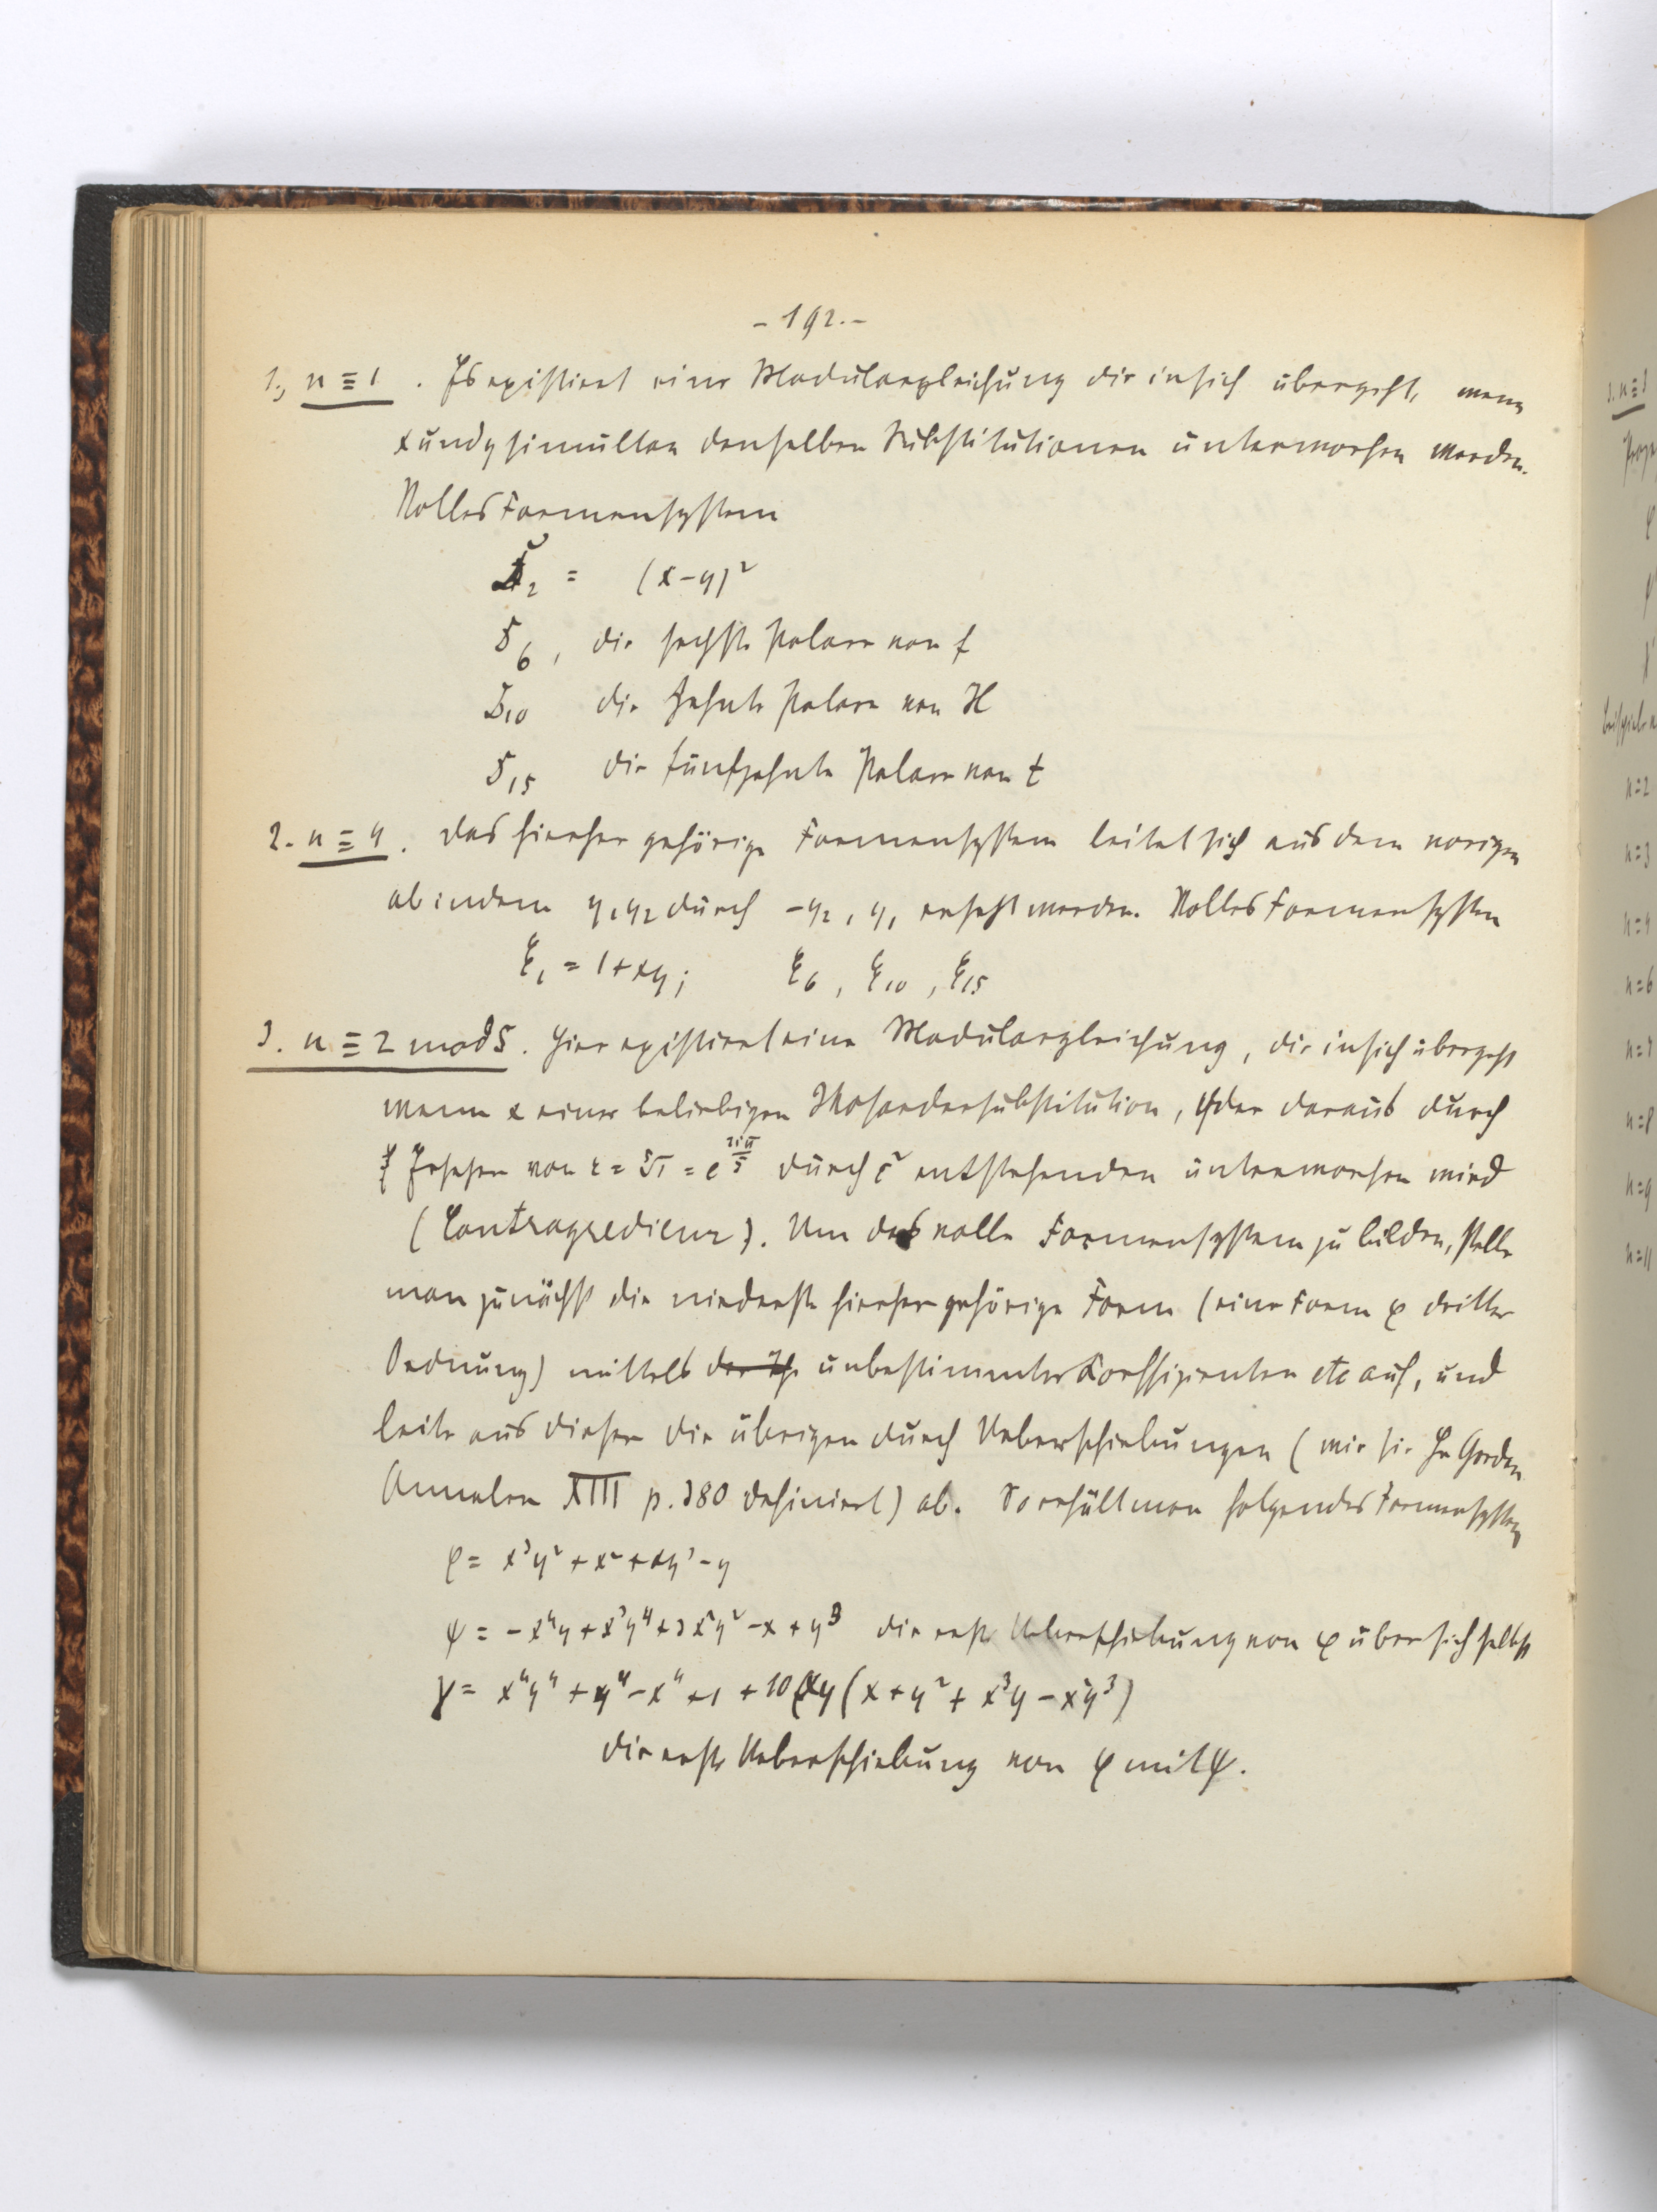 - 192. -
1., n ≡ 1. Es existiert eine Modulargleichung die in sich übergeht, wenn
x und y simultan denselben Substitutionen unterworfen werden.
Volles Formensystem
2 = (x-y)²
J6, die sechste Polare von f
J10 die zehnte Polare von H
J15 die fünfzehnte Polare von t
2. n ≡ 4. Das hierher gehörige Formensystem leitet sich aus dem vorigen
ab indem y1 y2 durch -y2, y1 ersetzt werden. Volles Formensystem
ξ1 = 1+xy; ξ6, ξ10, ξ15
3. n ≡ 2 mod 5. Hier existiert eine Modulargleichung, die in sich übergeht
wenn x einer beliebigen Ikosaedersubstitution, y der daraus durch
Ersetzen von ε = ⁵√1 = e^(2iπ/5) durch ε² entstehenden unterworfen wird
(Contragredienz). Um das volle Formensystem zu bilden, stelle
man zunächst die niederste hierher gehörige Form (eine Form φ dritter
Ordnung) mittels unbestimmter Koeffizienten etc auf, und
leite aus dieser die übrigen durch Ueberschiebungen (wie sie Hr Gordan
Annalen XIII p. 380 definiert) ab. So erhält man folgendes Formensystem
φ = x³y² + x² + xy³ - y
ψ = -x⁴y + x³y⁴ + 3x²y² - x + y³ die erste Ueberschiebung von φ über sich selbst
χ = x⁴y⁴ + y⁴ - x⁴ + 1 + 10xy(x + y² + x³y - x²y³)
die erste Ueberschiebung von φ mit ψ.
3. n ≡ 3
φ
ψ
χ
Beispiele
n=2
n=3
n=4
n=6
n=7
n=8
n=9
n=11